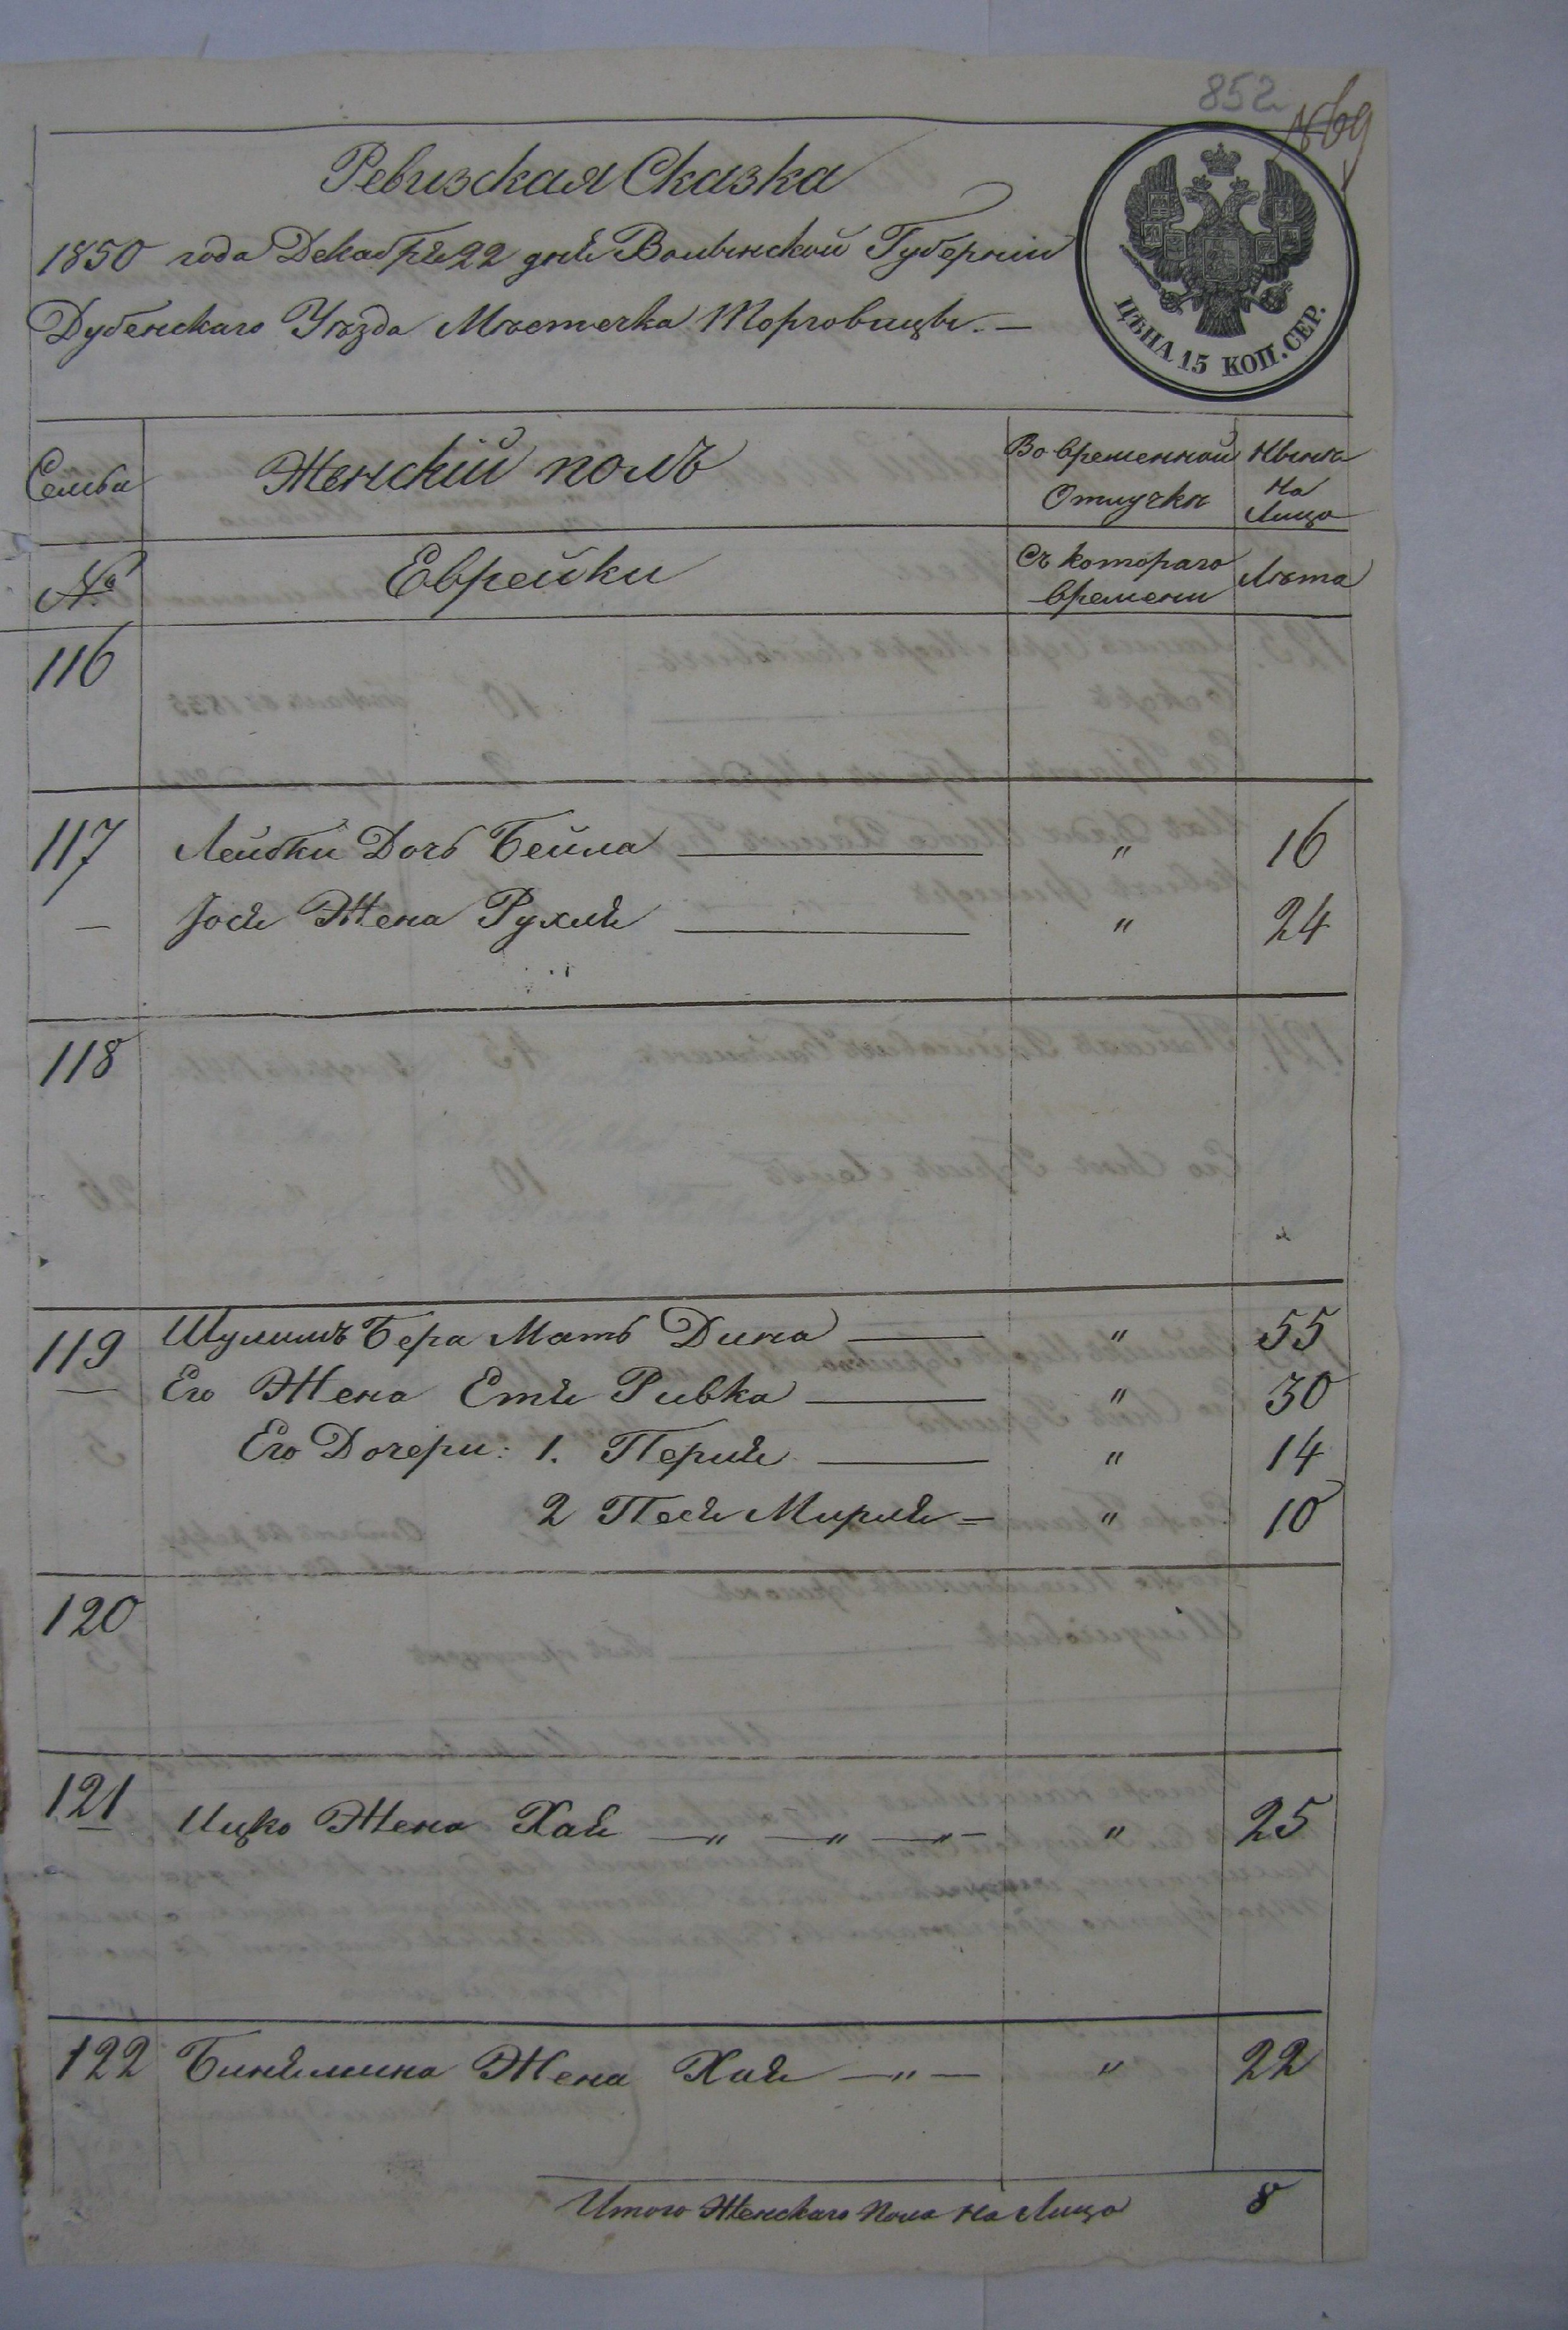 852
№69
Ревизская Сказка
1850 года Декабря 22 дня Волынской Губернии
Дубенскаго Уѣзда Мѣстечка Торговицы. —
ЦѢНА 15 КОП. СЕР.
Семьи Женскій полъ Во временной Отлучкѣ Нынѣ на Лицо
№ Еврейки Съ котораго времени Лѣта
116
117 Лейбки Дочь Бейла — „ 16
— Иося Жена Рухля — „ 24
118
119 Шулимъ Бера Мать Дина — „ 55
— Его Жена Етя Ривка — „ 30
Его Дочери: 1. Перля — „ 14
2 Песя Мирля — „ 10
120
121 Ицко Жена Хая —„ —„ —„— „ 25
122 Биньямина Жена Хая —„— „ 22
Итого Женскаго Пола на Лицо 8